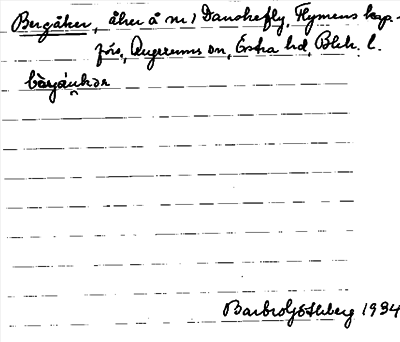 Bergåker, åker å nr 1 Danskefly, Flymens kap-
förs, Augerums sn, Östra hd, Blek. l.
bæ̀rjáukər
Barbro Göthberg 1934